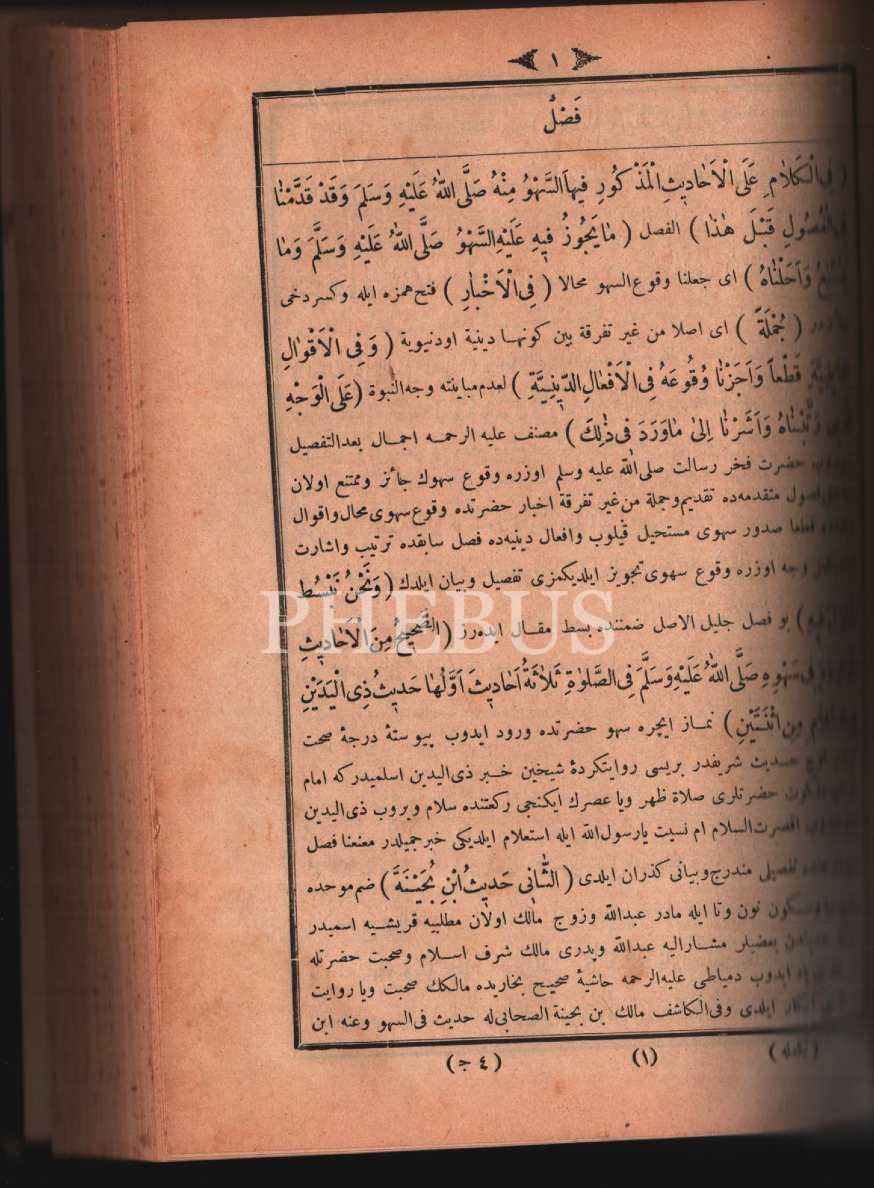 ١
فَصْلٌ
فِى الْكَلَامِ عَلَى الْاَحَادِيثِ الْمَذْكُورِ فِيهَا السَّهْوُ مِنْهُ صَلَّى اللّٰهُ عَلَيْهِ وَسَلَّمَ وَقَدْ قَدَّمْنَا
الْفُصُولِ قَبْلَ هٰذَا ) الفصل ( مَا يَجُوزُ فِيهِ عَلَيْهِ السَّهْوُ صَلَّى اللّٰهُ عَلَيْهِ وَسَلَّمَ وَمَا
وَاَحَلْنَاهُ ) اى جعلنا وقوع السهو محالا ( فِى الْاَخْبَارِ ) فتح همزه ايله وكسر دخى
( جُمْلَةً ) اى اصلا من غير تفرقة بين كونها دينية اودنيوية ( وَفِى الْاَقْوَالِ
قَطْعاً وَاَجَزْنَا وُقُوعَهُ فِى الْاَفْعَالِ الدِّينِيَّةِ ) لعدم مباينته وجه النبوة ( عَلَى الْوَجْهِ
رَتَّبْنَاهُ وَاَشَرْنَا اِلٰى مَا وَرَدَ فِى ذٰلِكَ ) مصنف عليه الرحمه اجمال بعد التفصيل
حضرت فخر رسالت صلى اللّٰه عليه وسلم اوزره وقوع سهوك جائز وممتنع اولان
فصول متقدمه ده تقديم وجملة من غير تفرقة اخبار حضرتده وقوع سهوى محال واقوال
قطعا صدور سهوى مستحيل قيلوب وافعال دينيه ده فصل سابقده ترتيب واشارت
وجه اوزره وقوع سهوى تجويز ايلديكمزى تفصيل وبيان ايلدك ( وَنَحْنُ نَبْسُطُ
) بو فصل جليل الاصل ضمننده بسط مقال ايده رز ( اَلصَّحِيحُ مِنَ الْاَحَادِيثِ
فِى سَهْوِهِ صَلَّى اللّٰهُ عَلَيْهِ وَسَلَّمَ فِى الصَّلٰوةِ ثَلَاثَةُ اَحَادِيثَ اَوَّلُهَا حَدِيثُ ذِى الْيَدَيْنِ
مِنِ اثْنَتَيْنِ ) نماز ايچره سهو حضرتده ورود ايدوب پيوستۀ درجۀ صحت
حديث شريفدر بريسى روايتكردۀ شيخين خبر ذى اليدين اسلميدركه امام
حضرتلرى صلاة ظهر ويا عصرك ايكنجى ركعتنده سلام ويروب ذى اليدين
اقصرت السلام ام نسيت يارسول اللّٰه ايله استعلام ايلديكى خبر جميلدر معنعنا فصل
تفصيلى مندرج وبيانى كذران ايلدى ( اَلثَّانِى حَدِيثُ ابْنِ بُحَيْنَةَ ) ضم موحده
سكون نون وتا ايله مادر عبداللّٰه وزوج مالك اولان مطلبيه قريشيه اسميدر
بعضيلر مشار اليه عبداللّٰه وپدرى مالك شرف اسلام وصحبت حضرتله
ايدوب دمياطى عليه الرحمه حاشيۀ صحيح بخاريده مالكك صحبت ويا روايت
انكار ايلدى وفى الكاشف مالك بن بحينة الصحابى له حديث فى السهو وعنه ابن
(١) ( ٤ ج )
PHEBUS